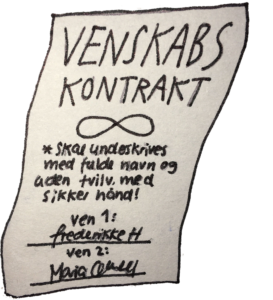 VENSKABS
KONTRAKT
* Skal underskrives
med fulde navn og
uden tvilv, med
sikker hånd!
ven 1:
frederikke H
ven 2:
Maria